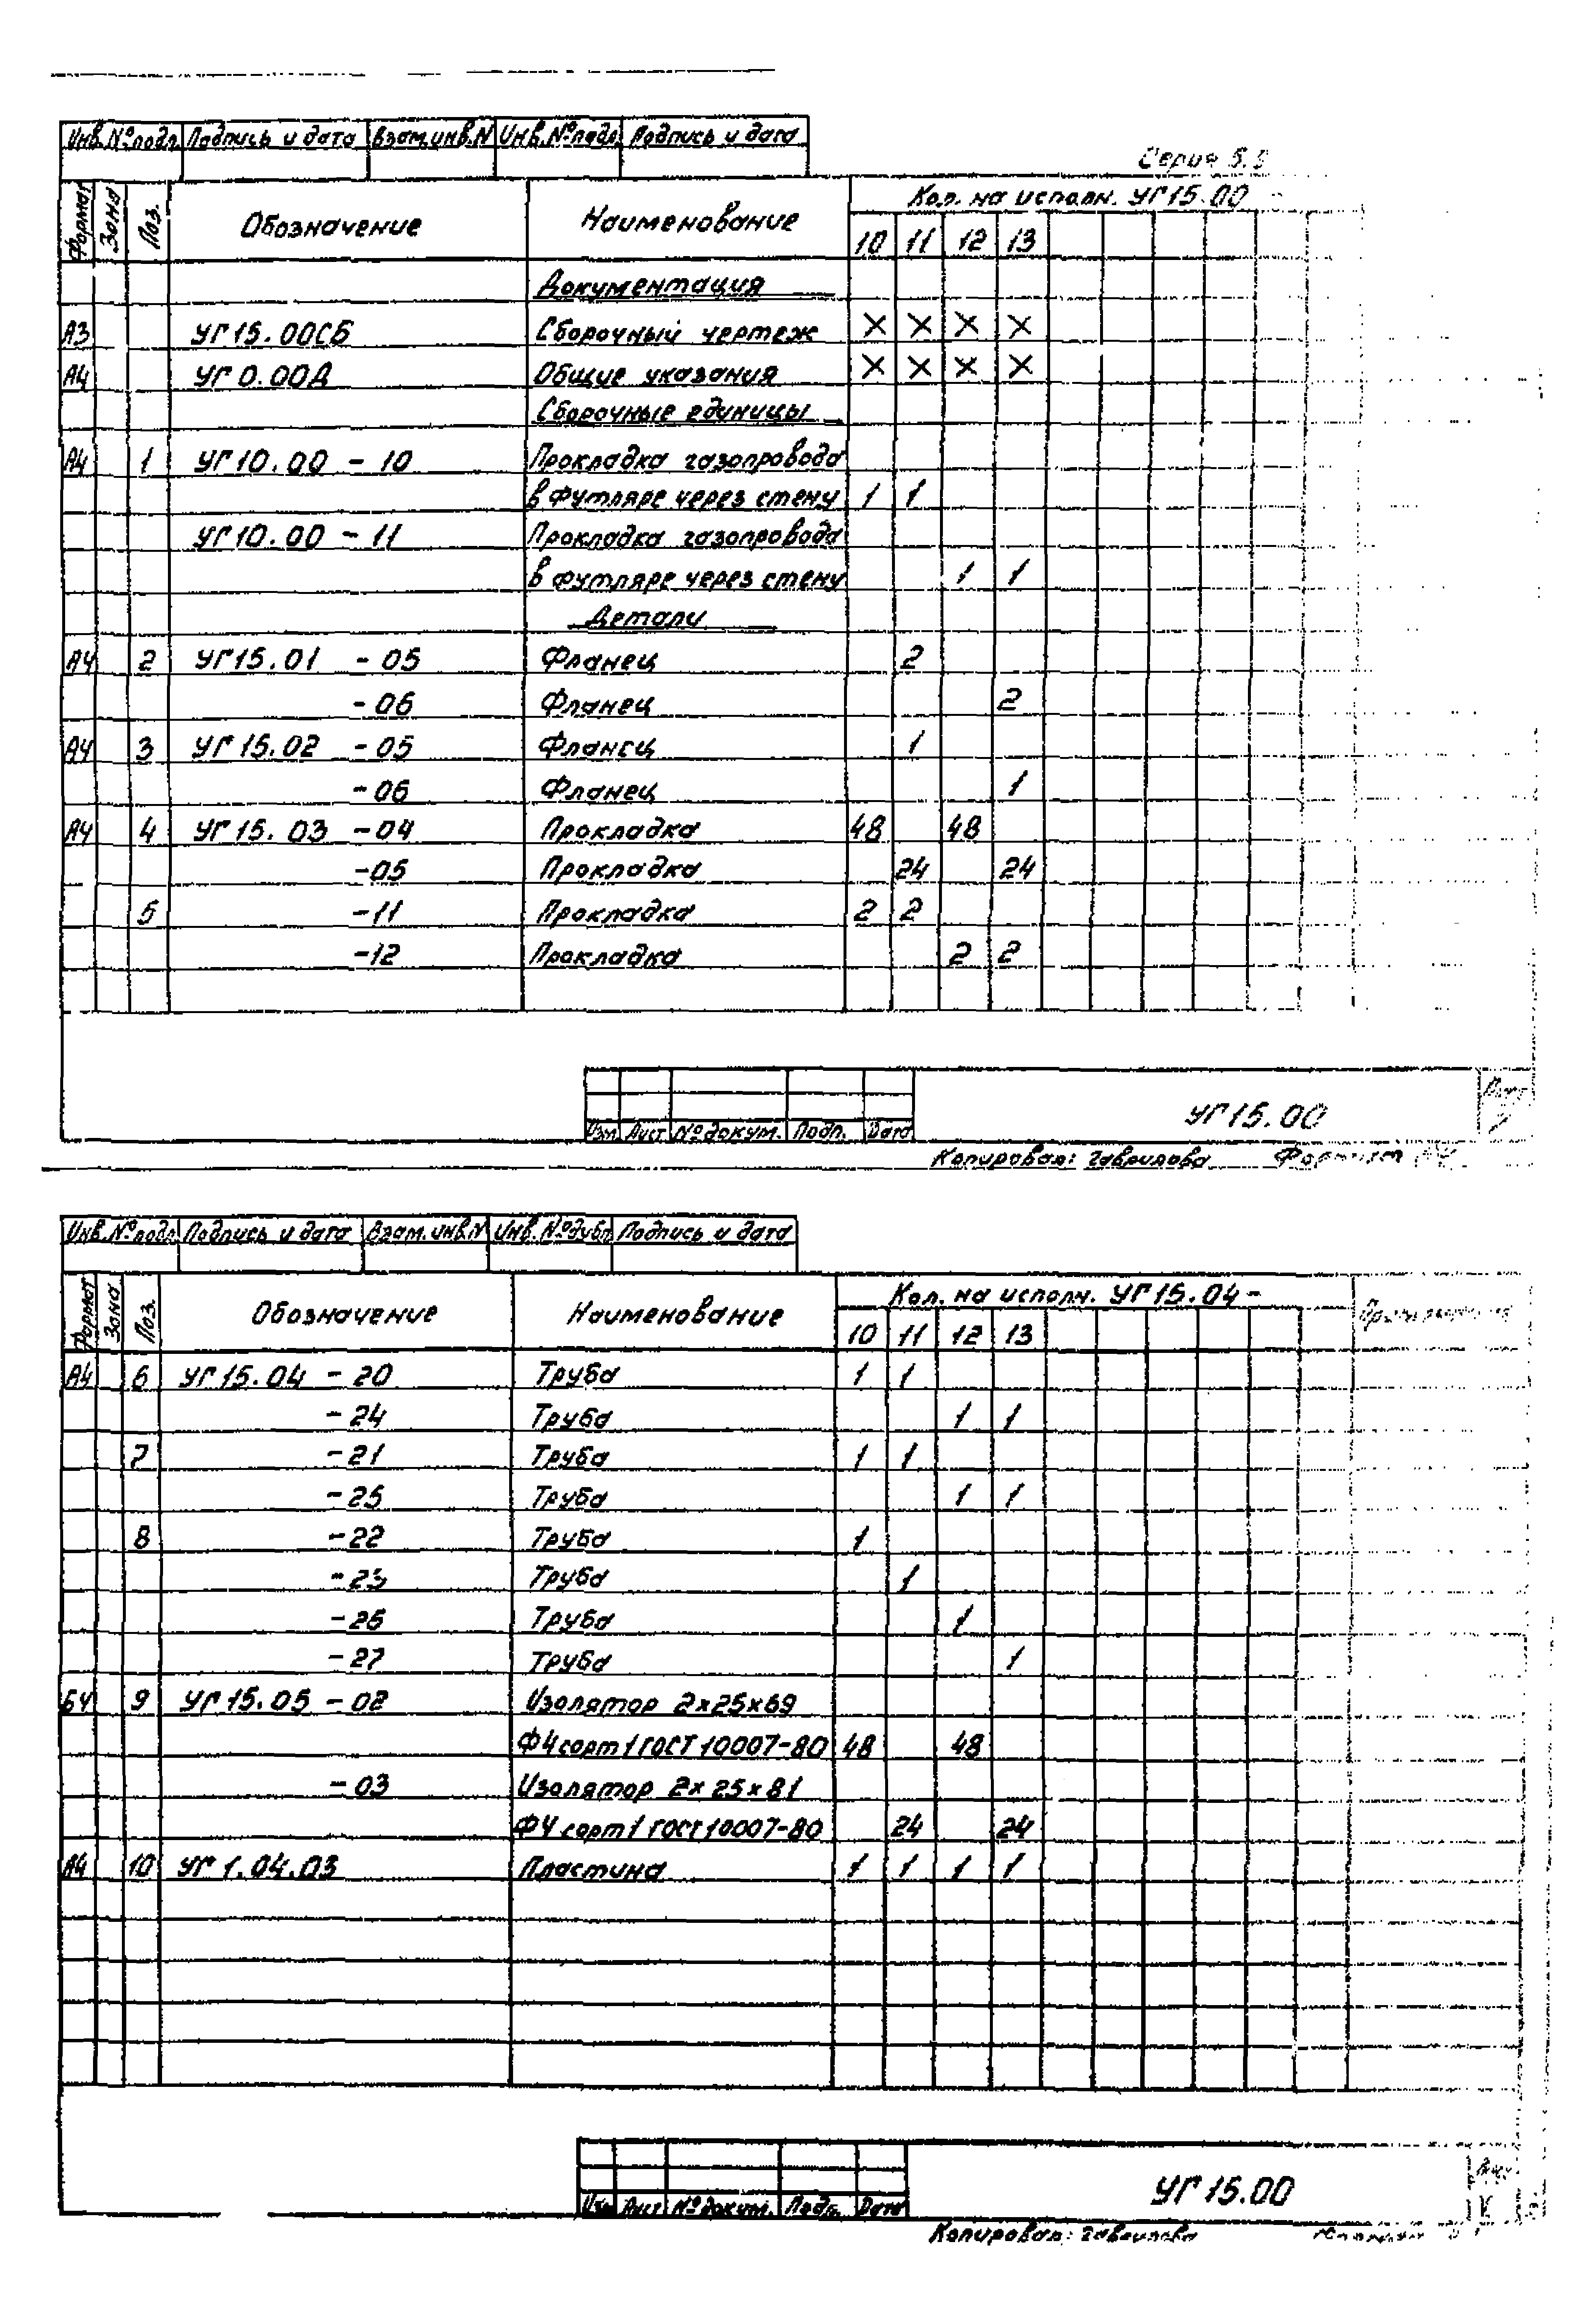 Инв.№подл. Подпись и дата Взам.инв.N Инв.№подл. Подпись и дата
Серия 5.
Формат Зона Поз. Обозначение Наименование Кол. на исполн. УГ15.00 -
10 11 12 13
Документация
А3 УГ15.00СБ Сборочный чертеж × × × ×
А4 УГ0.00Д Общие указания × × × ×
Сборочные единицы
А4 1 УГ10.00 - 10 Прокладка газопровода
в футляре через стену 1 1
УГ10.00 - 11 Прокладка газопровода
в футляре через стену 1 1
Детали
А4 2 УГ15.01 - 05 Фланец 2
- 06 Фланец 2
А4 3 УГ15.02 - 05 Фланец 1
- 06 Фланец 1
А4 4 УГ15.03 - 04 Прокладка 48 48
- 05 Прокладка 24 24
5 - 11 Прокладка 2 2
- 12 Прокладка 2 2
Изм Лист №докум. Подп. Дата УГ15.00 Лист
Копировал: Гаврилова Формат
Инв.№подл. Подпись и дата Взам.инв.N Инв.№дубл. Подпись и дата
Формат Зона Поз. Обозначение Наименование Кол. на исполн. УГ15.04 - Примечание
10 11 12 13
А4 6 УГ15.04 - 20 Труба 1 1
- 24 Труба 1 1
7 - 21 Труба 1 1
- 25 Труба 1 1
8 - 22 Труба 1
- 23 Труба 1
- 26 Труба 1
- 27 Труба 1
БЧ 9 УГ15.05 - 02 Изолятор 2×25×69
Ф4 сорт 1 ГОСТ 10007-80 48 48
- 03 Изолятор 2×25×81
Ф4 сорт 1 ГОСТ 10007-80 24 24
А4 10 УГ1.04.03 Пластина 1 1 1 1
Изм Лист №докум. Подп. Дата УГ15.00
Копировал: Гаврилова